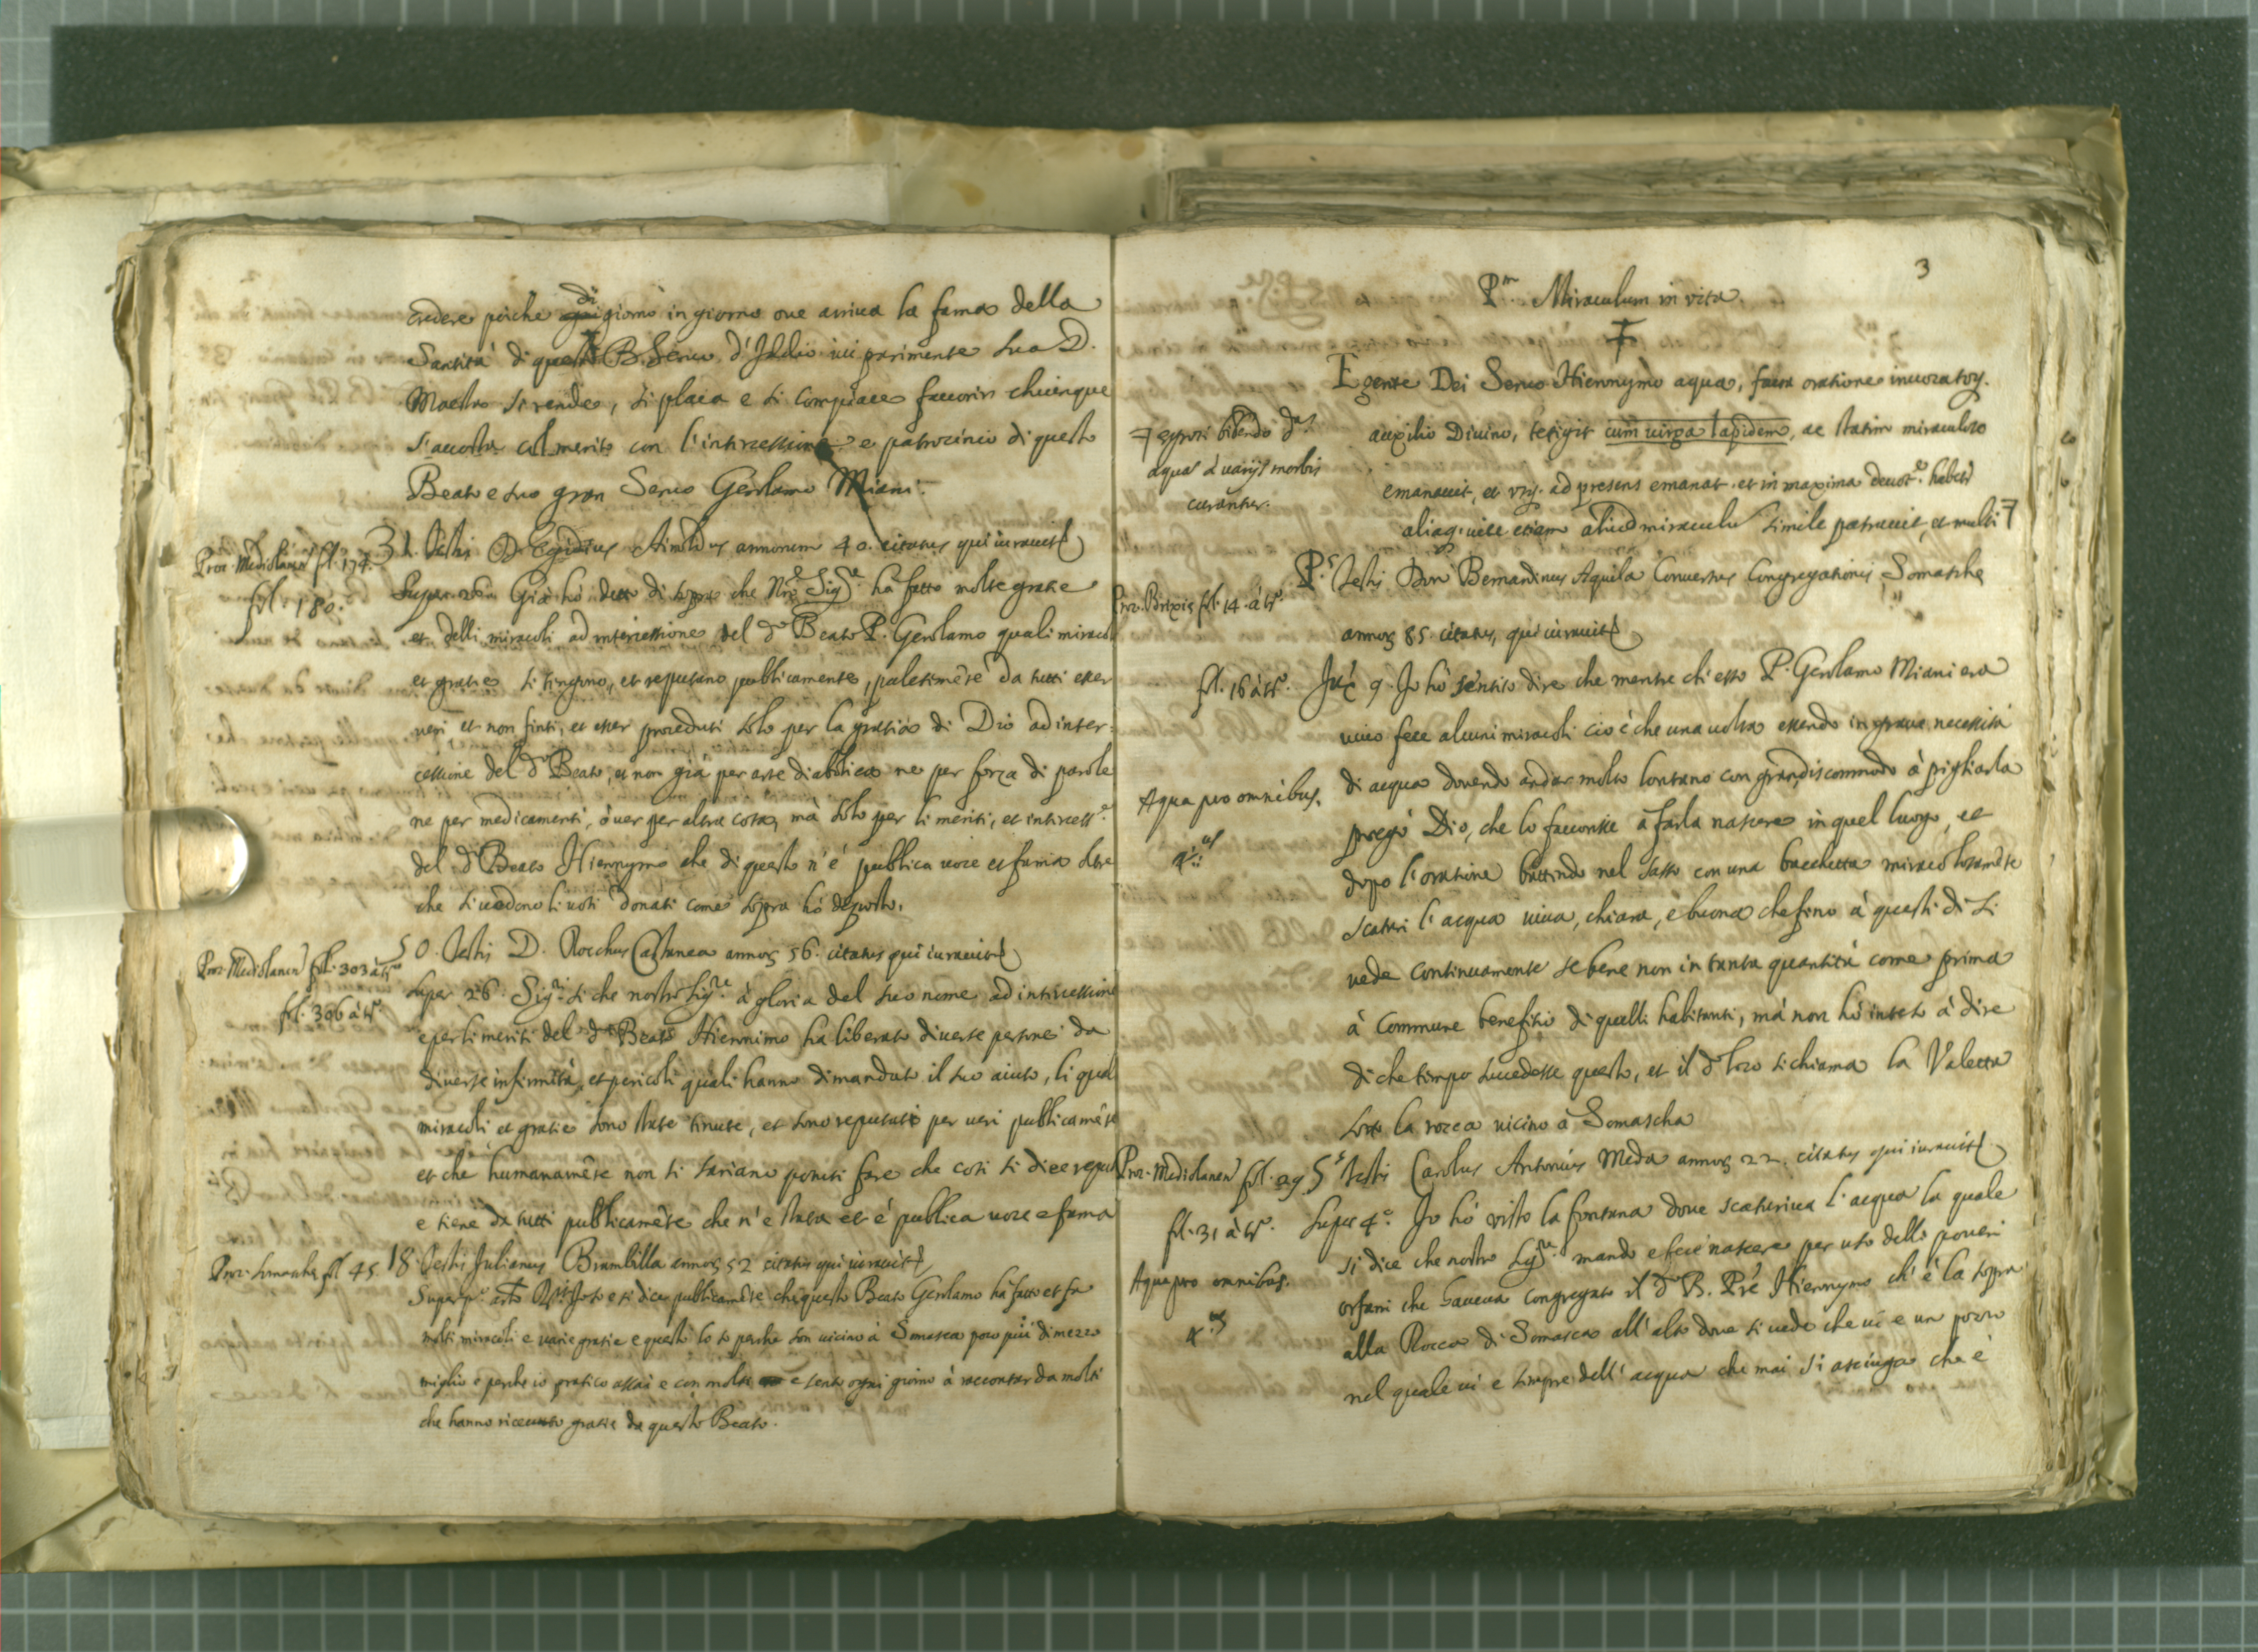 credere perche di giorno in giorno oue arriua la fama della
Santità di questo B. Seruo d'Iddio iui parimente sua D.
Maestà si rende, si placa e si compiace fauorir chiunque
s'accosta col merito con l'intercessione e patrocinio di questo
Beato e suo gran Seruo Gerolamo Miani.
Proc. Mediolanen fol. 174. 31. Testis D. Egidius annorum 40. citatus qui iurauit
fol. 180. Super 26. Già hò detto di sopra che Nro Sigre hà fatto molte gratie
et delli miracoli ad intercessione del do Beato P. Gerolamo quali miracoli
et gratie si tengono, et reputano publicamente, palesimēte da tutti esser
ueri et non finti, et esser proceduti solo per la gratia di Dio ad inter:
cessione del do Beato, et non già per arte diabolica ne per forza di parole
ne per medicamenti, ò uer per altra cosa, mà solo per li meriti, et intercesse
del do Beato Hieronymo che di questo n'è publica uoce et fama oltre
che si uedono li uoti donati come sopra hò deposto.
Proc. Mediolanen fol. 303 à tgo 50. Testis D. Rocchus Castanea annoꝝ 56. citatus qui iurauit
fol. 306 à tgo. Super 26. Sigr si che nostro Sigre à gloria del suo nome ad intercessione
e per li meriti del do Beato Hieronimo ha liberato diuerse persone da
diuerse infirmità, et pericoli quali hanno dimandato il suo aiuto, li quali
miracoli et gratie sono state tenute, et sono reputate per ueri publicamēte
et che humanamēte non si sariano potuti fare che così si dice reputa
e tiene da tutti publicamēte che n'è stata et è publica uoce e fama
Proc. Somascha fol. 45. 18. Testis Julianus Brambilla annoꝝ 52 citatus qui iurauit
Super po. arto so e si dice publicamēte che questo Beato Gerolamo hà fatto et fa
molti miracoli e uarie gratie e questo lo so perche son uicino à Somasca poco più di mezzo
miglio e perche io pratico assai e con molti e sento ogni giorno à raccontar da molti
che hanno riceuuto gratie da questo Beato.
3
Pm. Miraculum in vita.
Egente Dei Seruo Hieronymo aqua, facta oratione inuocatoq.
auxilio Diuino, tetigit cum uirga lapidem, ac statim miraculose
emanauit, et usq. ad presens emanat. et in maxima deuote. habetr
aliaq. uice etiam aliud miraculū simile patrauit, et multi 7
7 egroti bibendo das
aquas à uarijs morbis
curantur.
Pr. Testis Don Bernardinus Aquila Conuersus Congregationis Somasche
Proc. Brixie fol. 14. à tgo.
annoꝝ 85. citatus, qui iurauit
fol. 16 à tgo. Jux 9. Jo hò sentito dire che mentre ch'esso P. Gerolamo Miani era
uiuo fece alcuni miracoli cio è che una uolta essendo in graue necessità
di acqua douendo andar molto lontano con gran discommodo à pigliarla
Aqua pro omnibus.
pregò Dio, che lo fauorisse à farla nascere in quel luogo, et
4us
dopo l'oratione battendo nel sasso con una bacchetta miracolosamēte
scaturì l'acqua uiua, chiara, e buona che fino à questi dì si
uede continuamente se bene non in tanta quantità come prima
à commune benefitio di quelli habitanti, mà non hò inteso à dire
di che tempo succedesse questo, et il do loco si chiama la Valletta
sotto la rocca uicino à Somascha
Proc. Mediolanen fol. 29. 5s Testis Carolus Antonius Meda annoꝝ 22. citatus qui iurauit
fol. 31 à tgo. Super 4o. Jo hò visto la fontana doue scaturiua l'acqua la quale
si dice che nostro Sigre. mandò e fece nascere per uso delli poueri
Aqua pro omnibus.
orfani che haueua congregato il do B. Prē Hieronymo ch'è la sopra
4us
alla Rocca di Somasca all'alto doue si uede che ui e un pozzo
nel quale ui e sempre dell'acqua che mai si asciuga che è